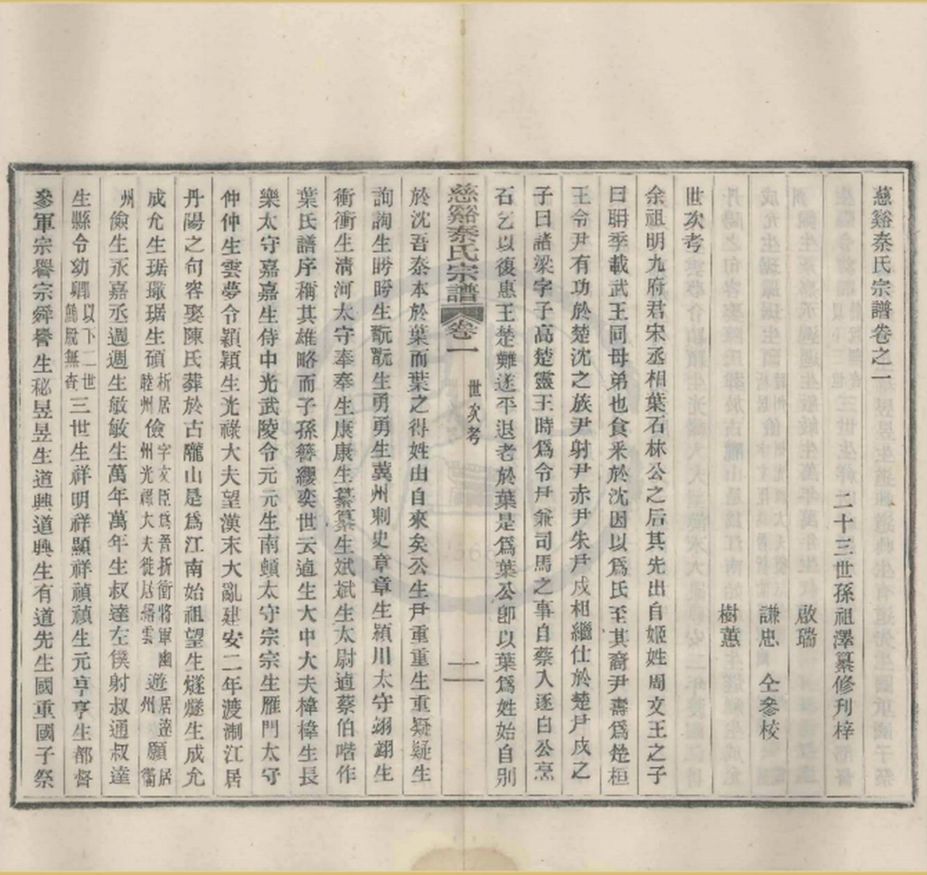 慈谿秦氏宗譜卷之一
二十三世孫祖澤纂修刊梓
啟瑞
謙忠 仝參校
樹蕙
世次考
余祖明九府君宋丞相葉石林公之后其先出自姬姓周文王之子
曰聃季載武王同母弟也食釆於沈因以爲氏至其裔尹壽爲楚桓
王令尹有功於楚沈之族尹射尹赤尹朱尹戌相繼仕於楚尹戌之
子曰諸梁字子高楚靈王時爲令尹兼司馬之事自蔡入逐白公烹
石乞以復惠王楚難遂平退老於葉是爲葉公卽以葉爲姓始自別
慈谿秦氏宗譜 卷一 世次考 一
於沈吾秦本於葉而葉之得姓出自來矣公生尹重重生重疑疑生
詢詢生盻盻生翫翫生勇勇生冀州刺史章章生潁川太守翊翊生
衝衝生清河太守奉奉生康康生纂纂生斌斌生太尉遉蔡伯喈作
葉氏譜序稱其雄略而子孫簪纓奕世云遉生大中大夫楎楎生長
樂太守嘉嘉生侍中光武陵令元元生南頓太守宗宗生雁門太守
仲仲生雲夢令穎穎生光祿大夫望漢末大亂建安二年渡淛江居
丹陽之句容娶陳氏葬於古隴山是爲江南始祖望生燧燧生成允
成允生琚璥琚生碩析居睦州儉字文臣爲晉折衝將軍幽州光祿大夫徙居縉雲遊居遼州願居衢
州儉生永嘉丞週週生敏敏生萬年萬年生叔達左僕射叔通叔達
生縣令幼卿以下二世歸脫無查三世生祥明祥顯祥禎禎生元亨亨生都督
參軍宗譽宗舜譽生秘昱昱生道興道興生有道先生國重國子祭